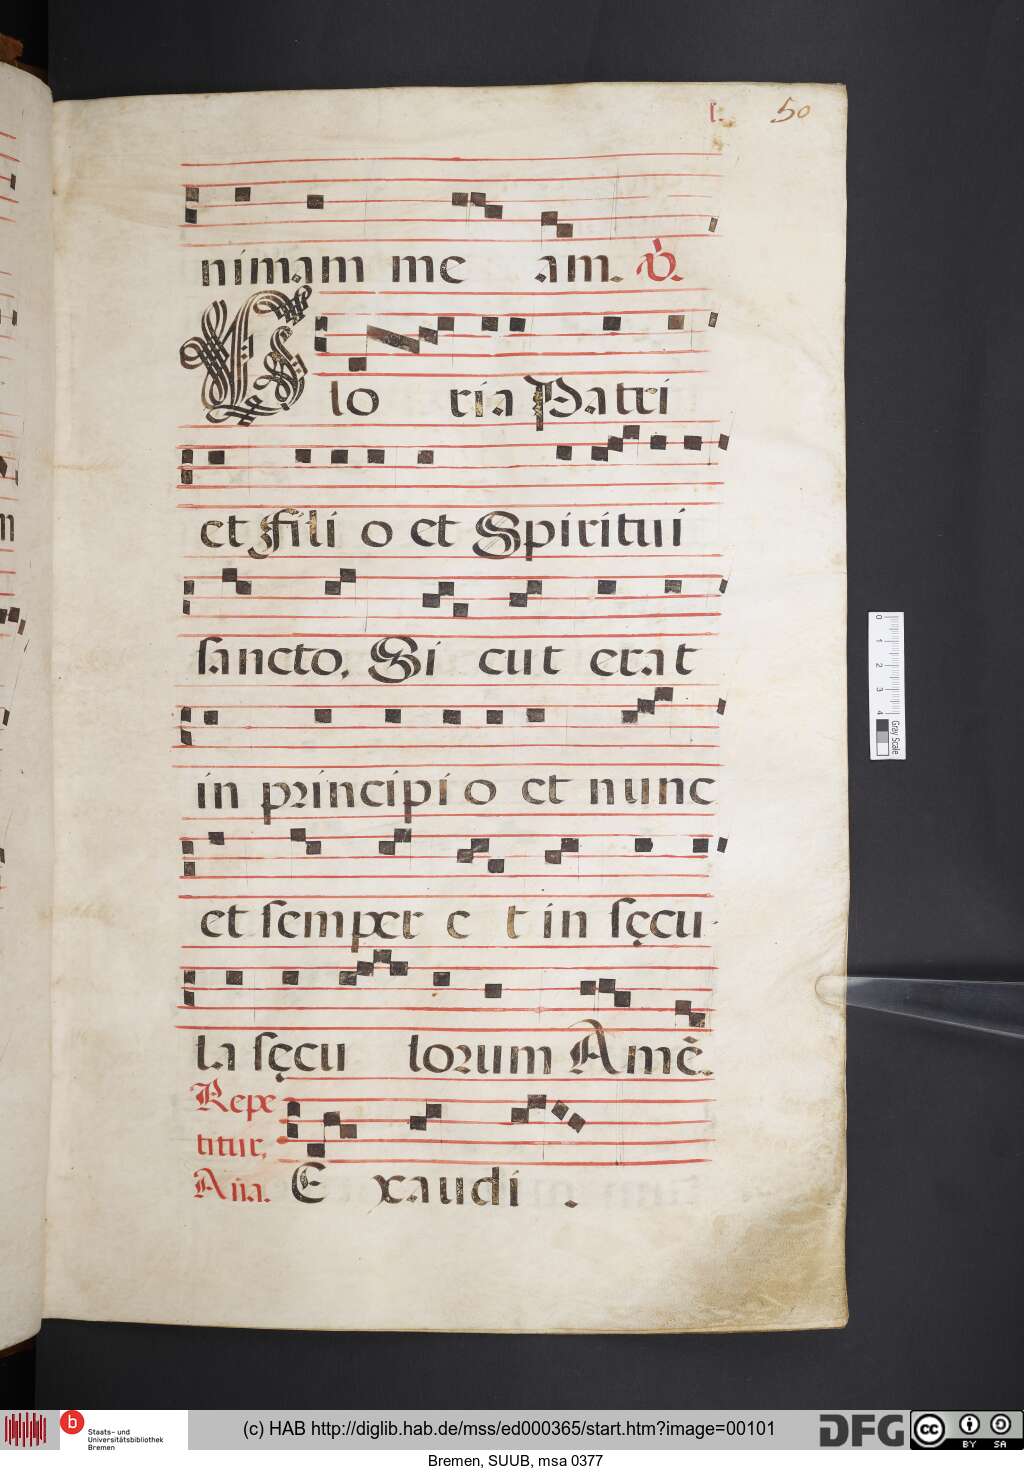 l. 50
nimam me am. V.
Glo ria Patri
et Fili o et Spiritui
sancto, Si cut erat
in principi o et nunc
et semper e t in sęcu-
la sęcu lorum Amē.
Repe
titur,
Aña. E xaudi .
0 1 2 3 4 Gray Scale
b Staats- und
Universitätsbibliothek
Bremen
(c) HAB http://diglib.hab.de/mss/ed000365/start.htm?image=00101
DFG
cc BY SA
Bremen, SUUB, msa 0377